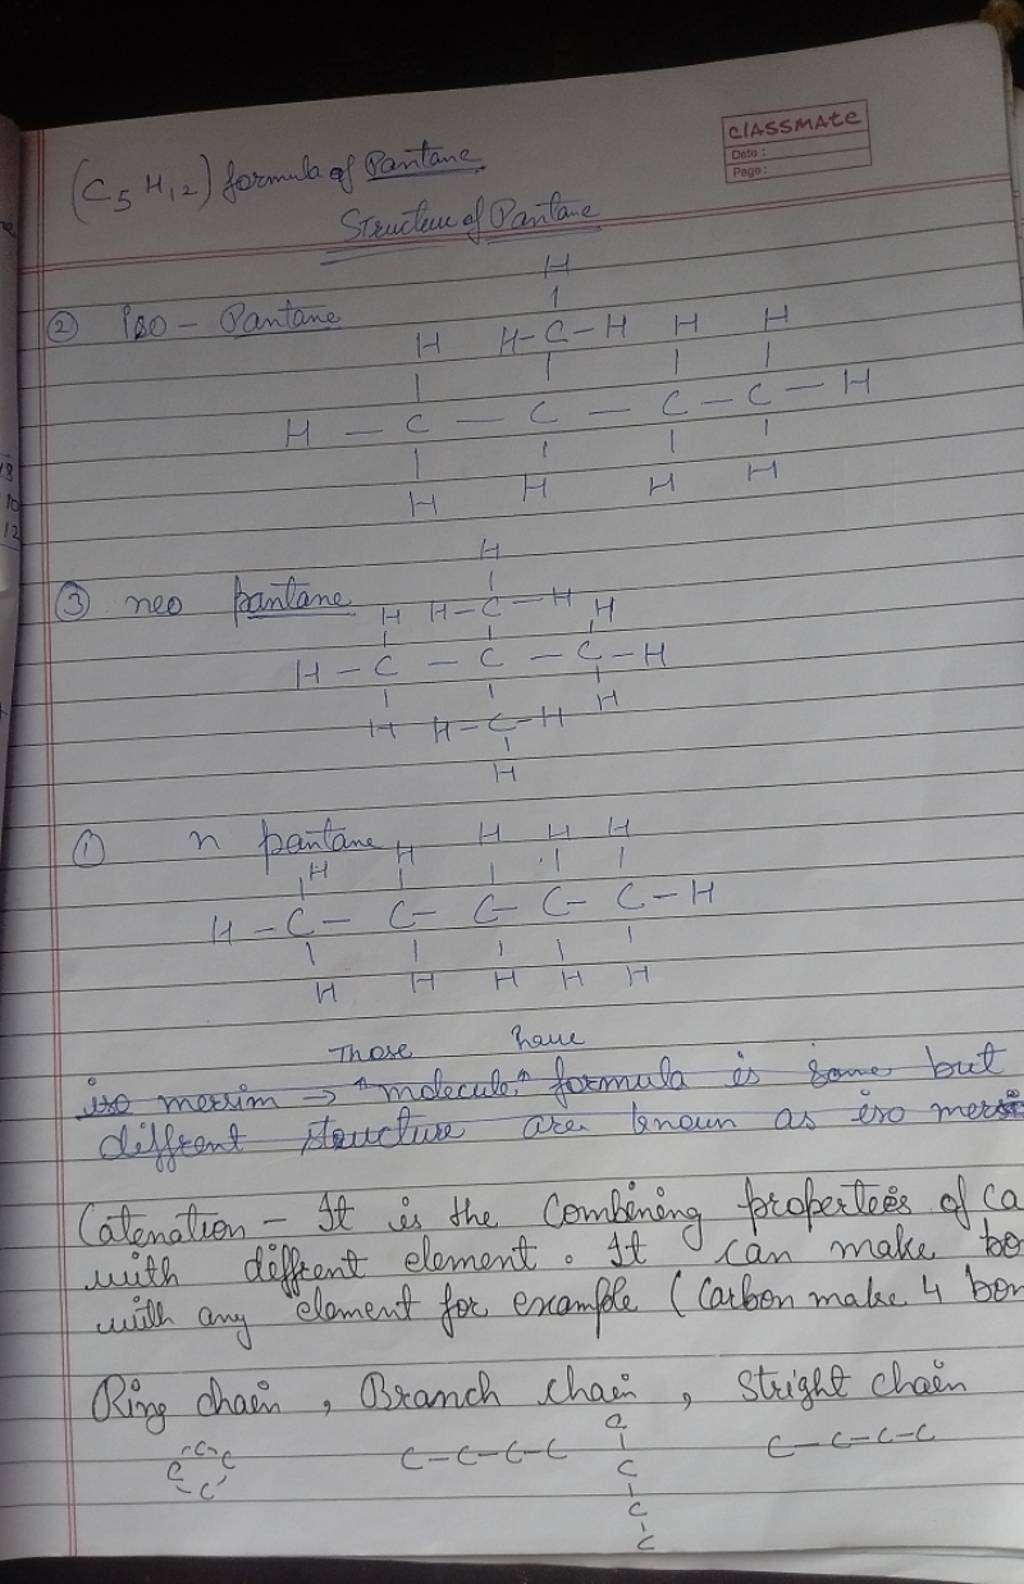 CLASSMATE
Date :
Page :
(C5 H12) formula of Pantane
Structure of Pantane
② iso - Pantane
H
|
H H-C-H H H
| | | |
H - C - C - C - C - H
| | | |
H H H H
③ neo pantane
H
|
H H-C-H H
| | |
H - C - C - C - H
| | |
H H-C-H H
|
H
① n pantane
H H H H H
| | | | |
H - C - C - C - C - C - H
| | | | |
H H H H H
Those have
iso merrim → ^ molecule ^ formula is same but
diffrent structure are known as iso
Catenation - It is the Combining propertees of Ca
with diffrent element. It can make bo
with any element for example (Carbon make 4 bon
Ring chain, Branch chain, Stright chain
C C C C
C-C-C-C
C
|
C
|
C
|
C
C-C-C-C
18
10
12